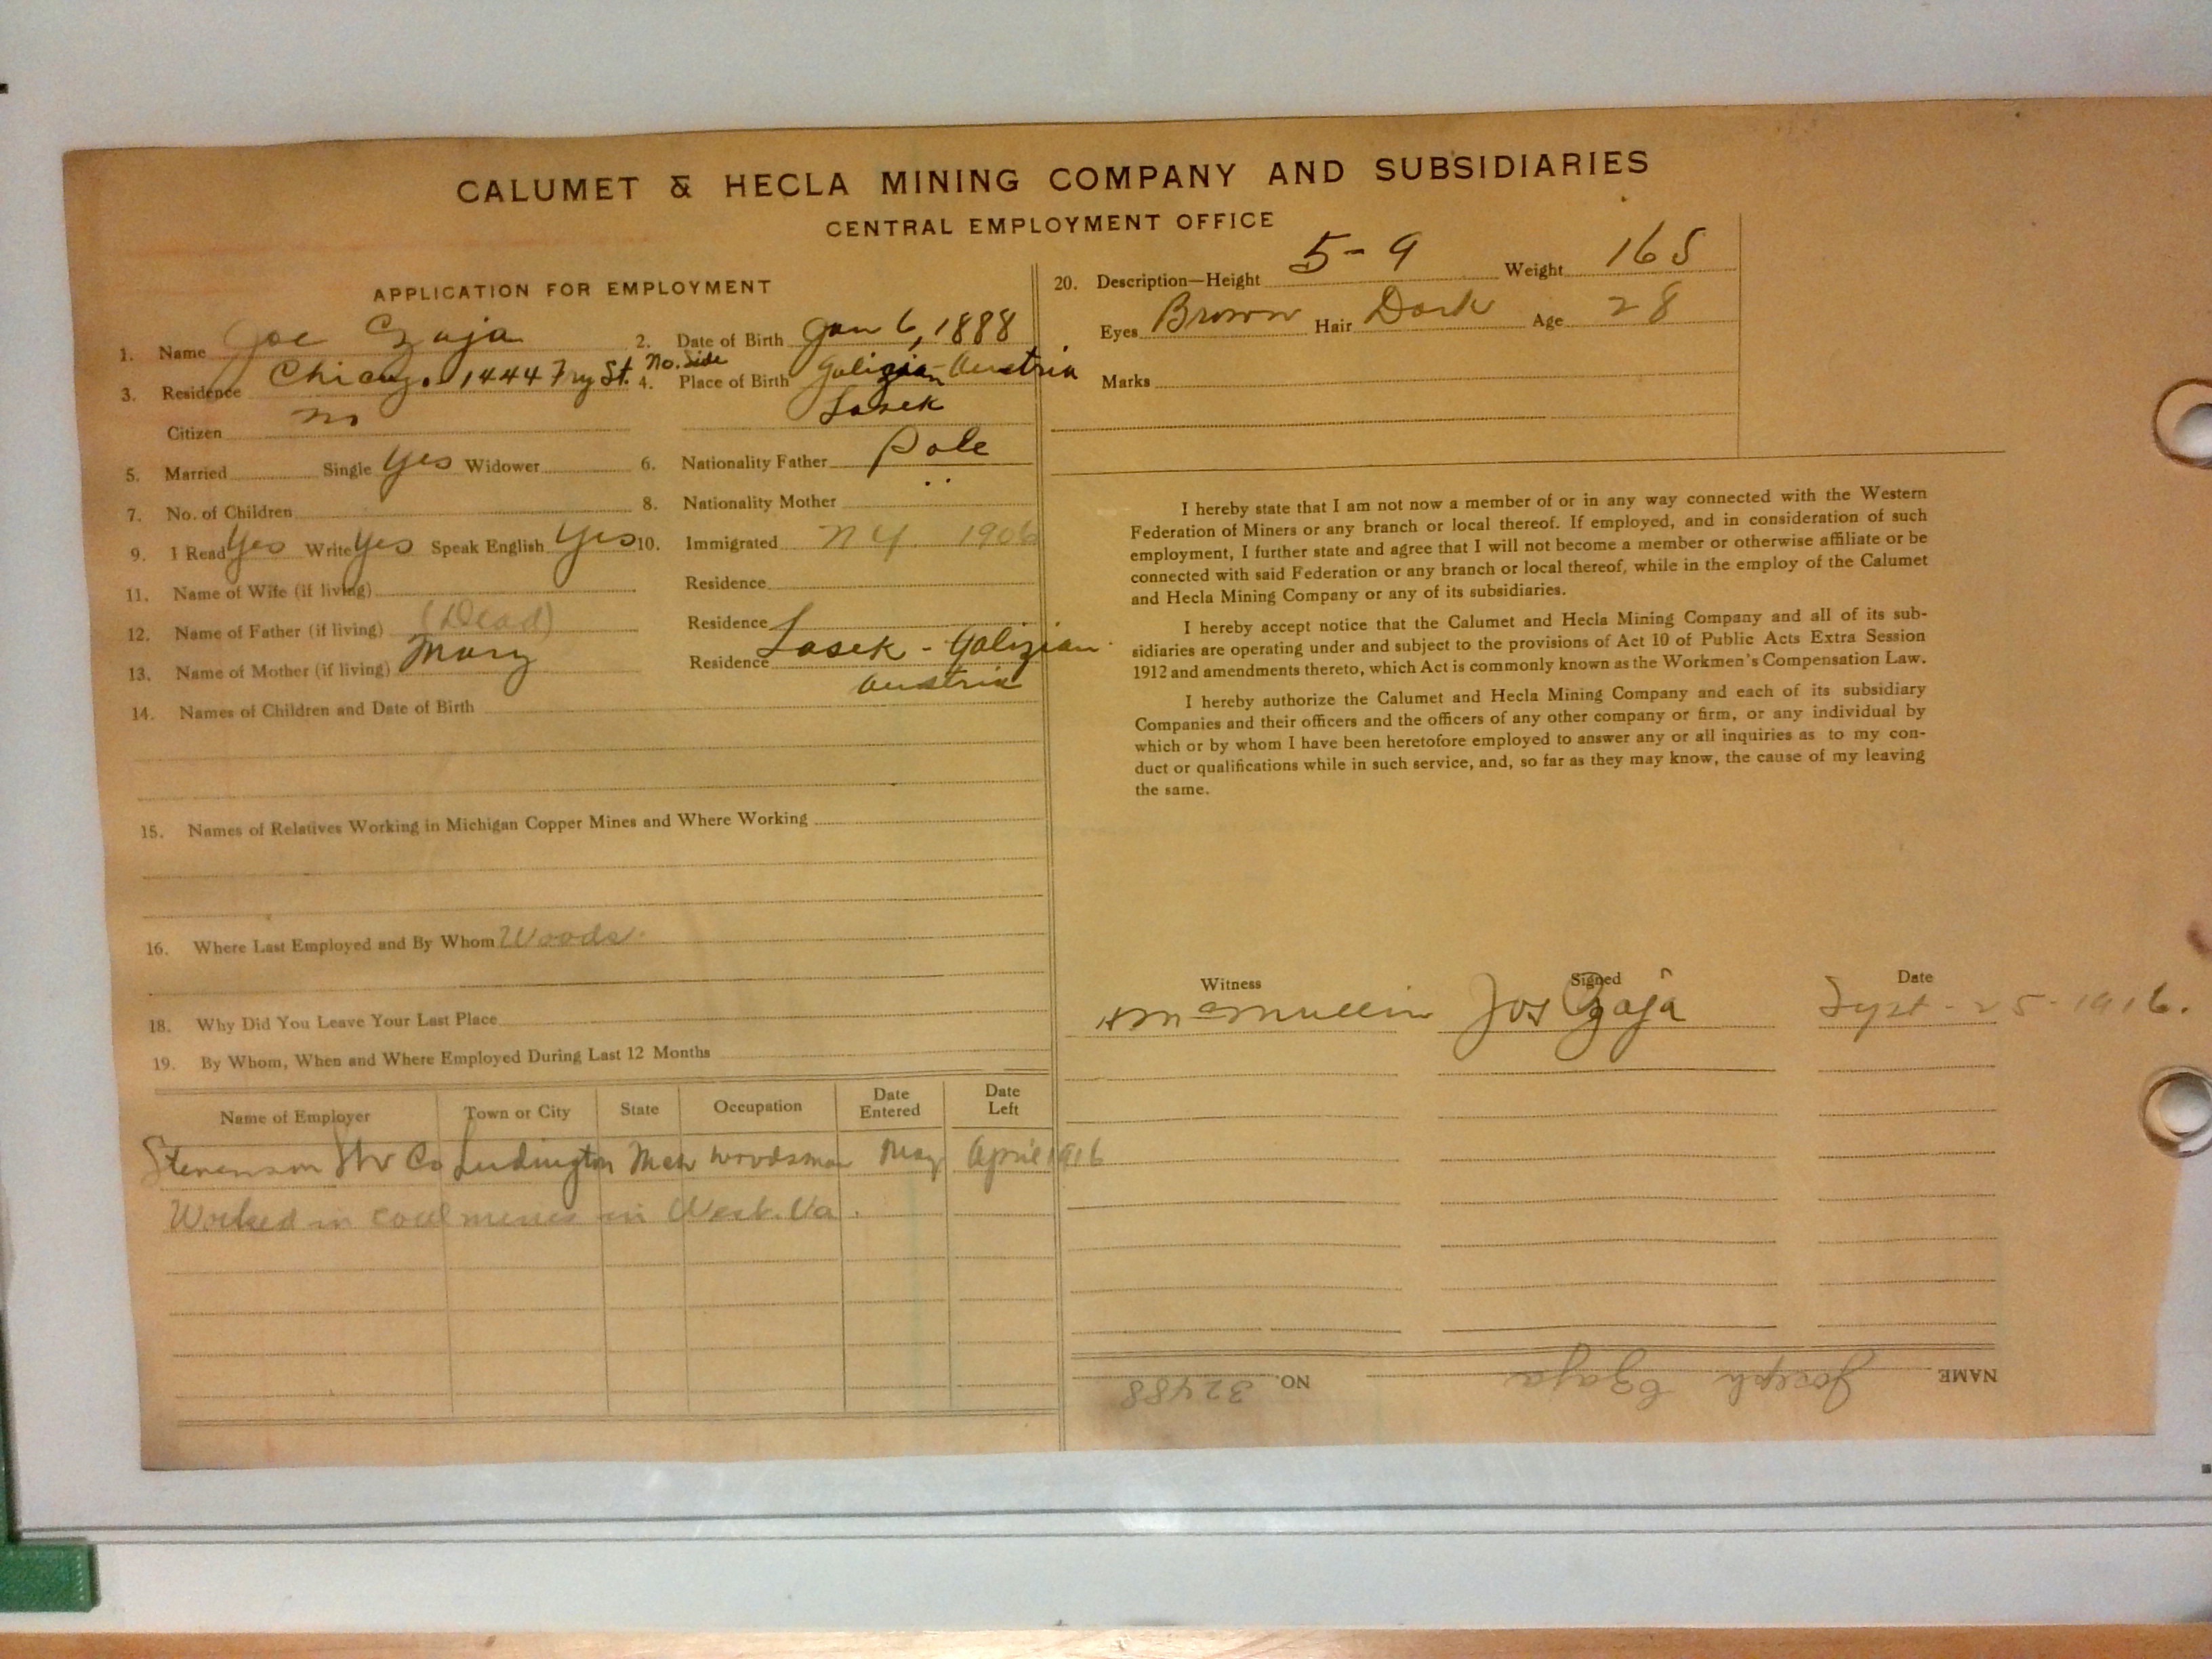 CALUMET & HECLA MINING COMPANY AND SUBSIDIARIES
CENTRAL EMPLOYMENT OFFICE
APPLICATION FOR EMPLOYMENT
1. Name Joe Czaja
2. Date of Birth Jan 6, 1888
3. Residence Chicago. 1444 Fry St. No. Side
4. Place of Birth Galizian-Austria
Lasek
Citizen no
5. Married Single Yes Widower
6. Nationality Father Pole
7. No. of Children
8. Nationality Mother " 
9. I Read Yes Write Yes Speak English Yes
10. Immigrated N Y. 1906
11. Name of Wife (if living)
Residence
12. Name of Father (if living) (Dead)
Residence
13. Name of Mother (if living) Mary
Residence Lasek - Galizian
Austria
14. Names of Children and Date of Birth
15. Names of Relatives Working in Michigan Copper Mines and Where Working
16. Where Last Employed and By Whom Woods.
18. Why Did You Leave Your Last Place
19. By Whom, When and Where Employed During Last 12 Months
Name of Employer Town or City State Occupation Date Entered Date Left
Stevenson Co Ludington Mch Woodsman May April 1916
Worked in coal mines in West. Va.
20. Description—Height 5-9 Weight 165
Eyes Brown Hair Dark Age 28
Marks
I hereby state that I am not now a member of or in any way connected with the Western
Federation of Miners or any branch or local thereof. If employed, and in consideration of such
employment, I further state and agree that I will not become a member or otherwise affiliate or be
connected with said Federation or any branch or local thereof, while in the employ of the Calumet
and Hecla Mining Company or any of its subsidiaries.
I hereby accept notice that the Calumet and Hecla Mining Company and all of its sub-
sidiaries are operating under and subject to the provisions of Act 10 of Public Acts Extra Session
1912 and amendments thereto, which Act is commonly known as the Workmen's Compensation Law.
I hereby authorize the Calumet and Hecla Mining Company and each of its subsidiary
Companies and their officers and the officers of any other company or firm, or any individual by
which or by whom I have been heretofore employed to answer any or all inquiries as to my con-
duct or qualifications while in such service, and, so far as they may know, the cause of my leaving
the same.
Witness Signed Date
H McMullin Jos Czaja Sept - 25 - 1916.
NAME Joseph Czaja NO. 32488